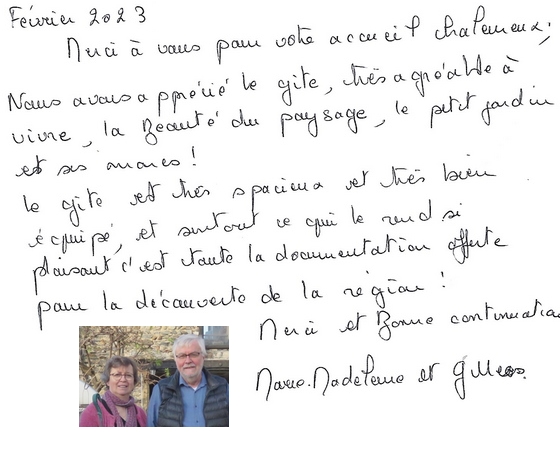 Février 2023
Merci à vous pour votre accueil chaleureux,
Nous avons apprécié le gite, très agréable à
vivre, la Beauté du paysage, le petit jardin
et ses !
le gite est très spacieux et très bien
équipé, et surtout ce qui le rend si
plaisant c'est toute la documentation offerte
pour la découverte de la région !
Merci et Bonne continuation
Marie.Madeleine et Gilles.